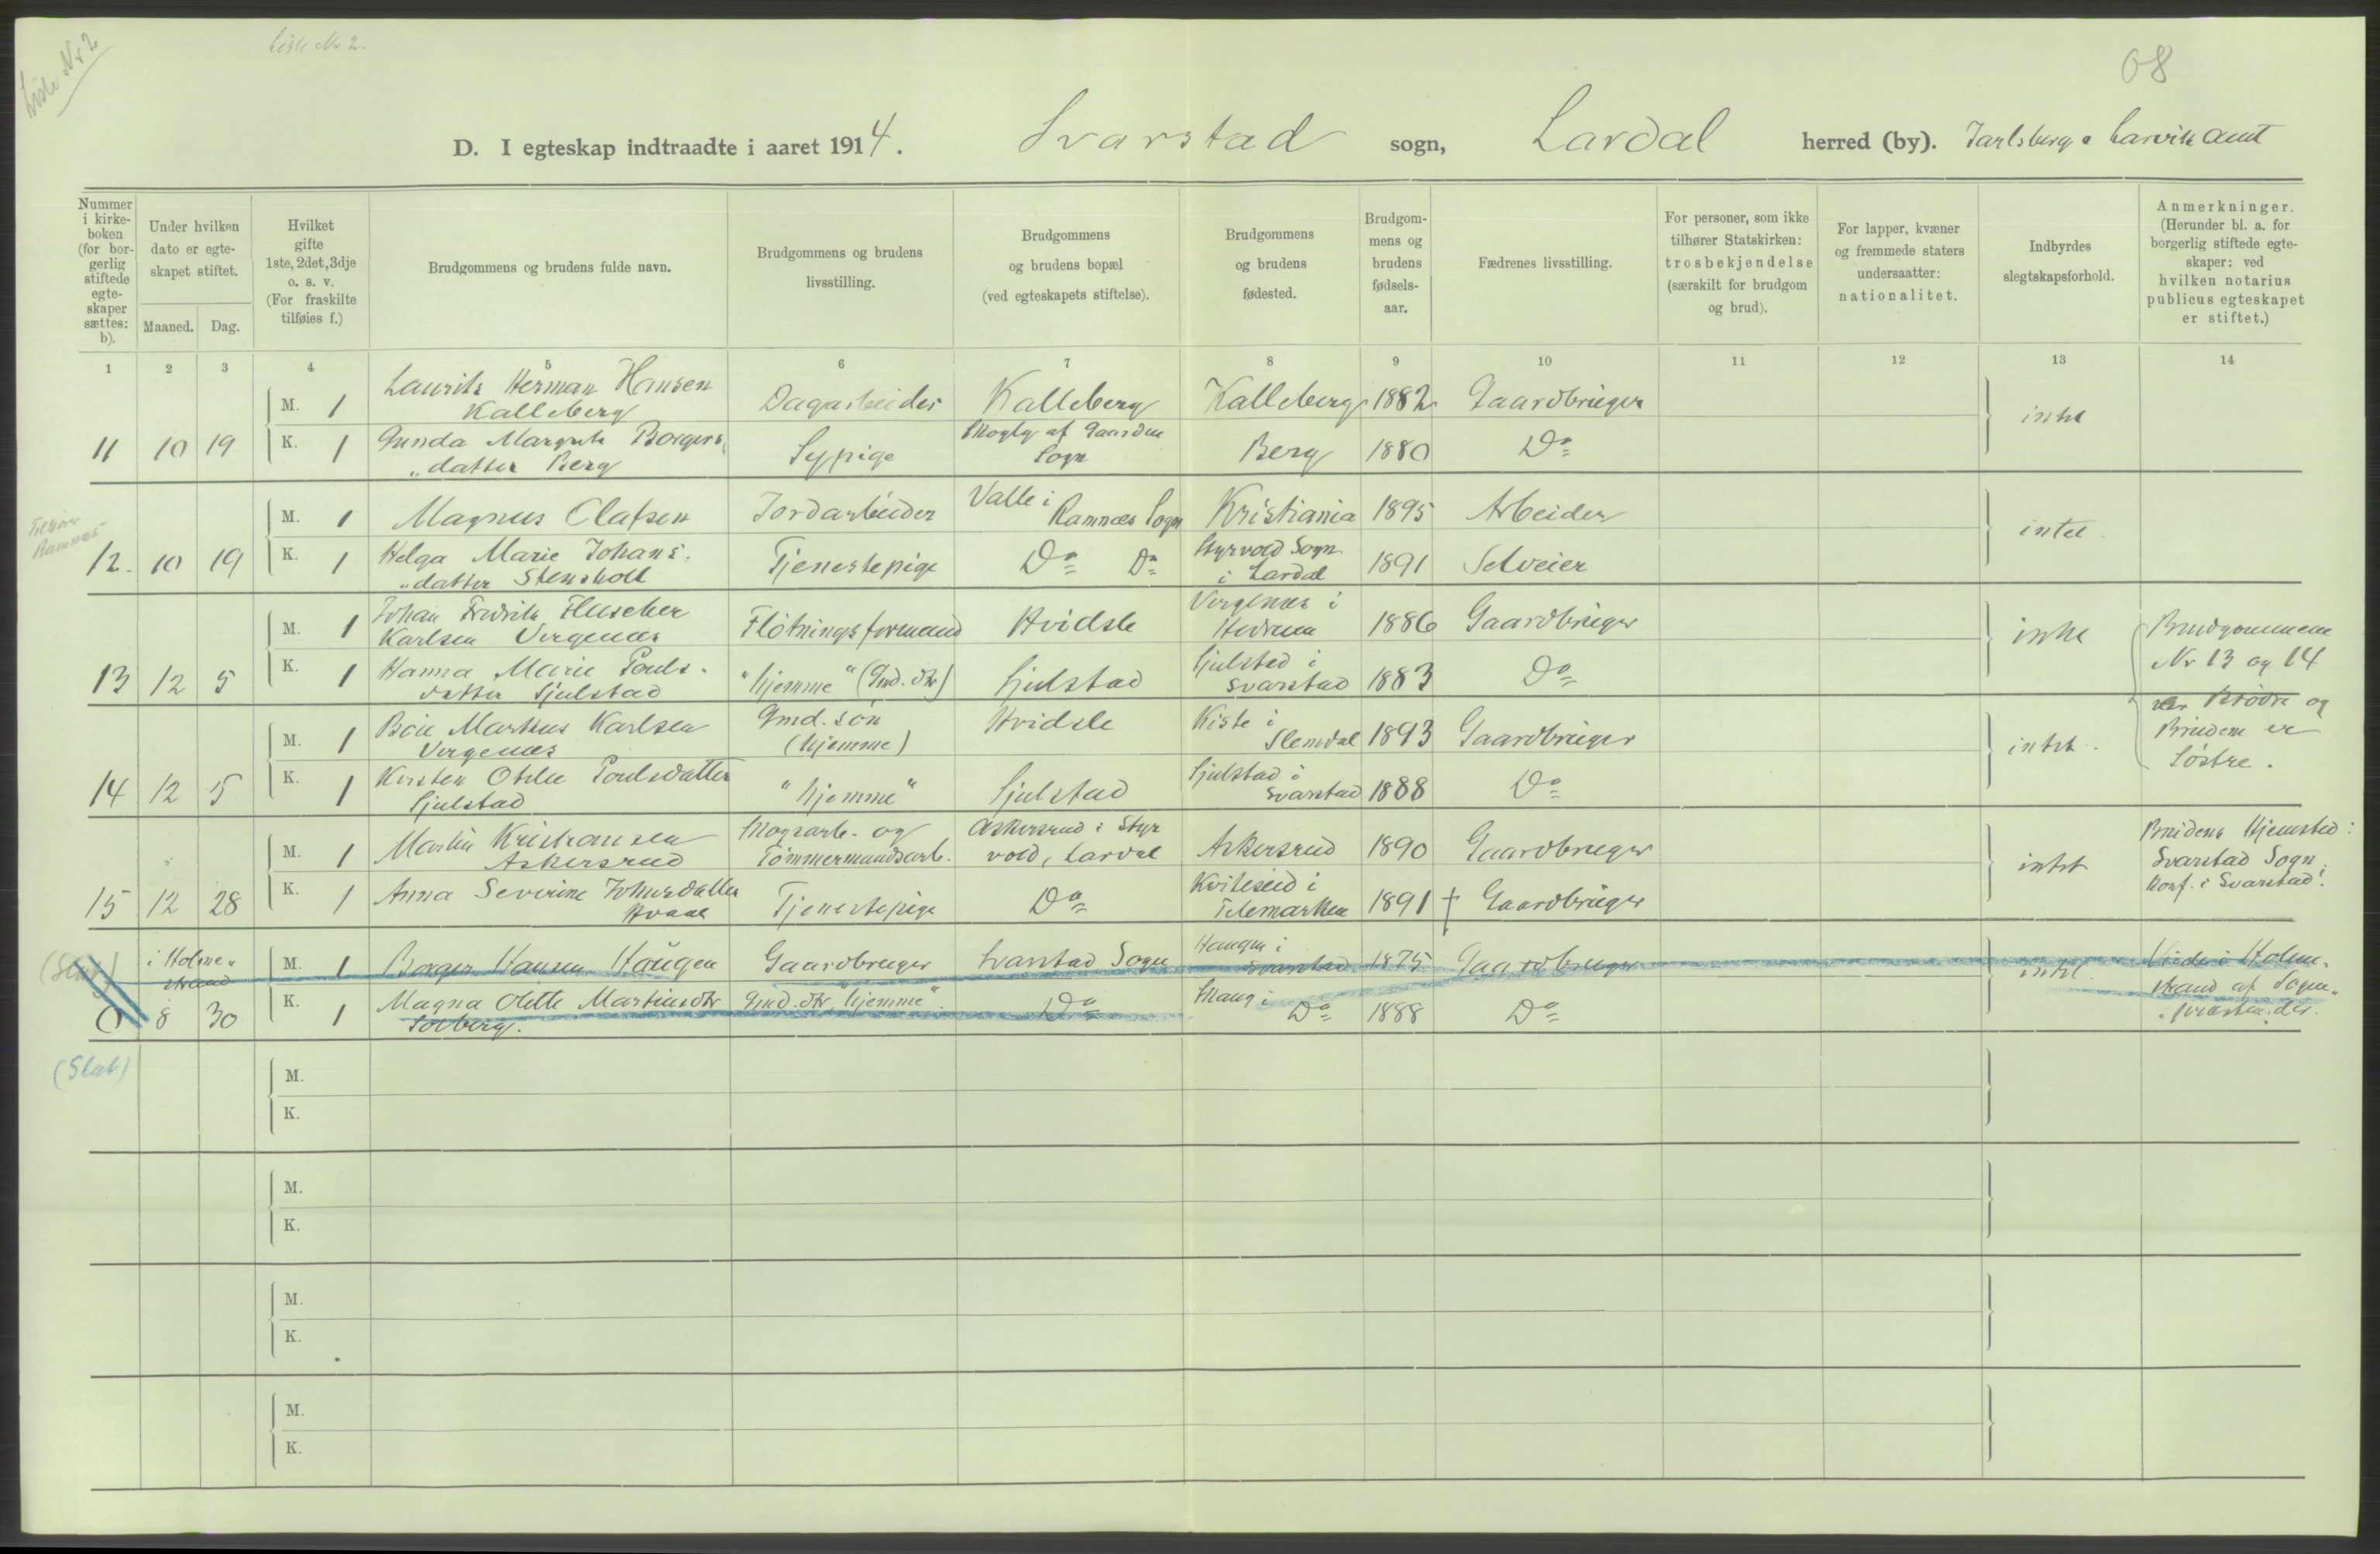 Liste Nr 2
Liste Nr 2.
68
D. I egteskap indtraadte i aaret 1914. Svarstad sogn, Lardal herred (by). Jarlsberg o Larvik amt
Nummer i kirkeboken (for borgerlig stiftede egteskaper sættes: b).
Under hvilken dato er egteskapet stiftet.
Maaned. Dag.
Hvilket gifte 1ste, 2det, 3dje o. s. v. (For fraskilte tilføies f.)
Brudgommens og brudens fulde navn.
Brudgommens og brudens livsstilling.
Brudgommens og brudens bopæl (ved egteskapets stiftelse).
Brudgommens og brudens fødested.
Brudgommens og brudens fødselsaar.
Fædrenes livsstilling.
For personer, som ikke tilhører Statskirken: trosbekjendelse (særskilt for brudgom og brud).
For lapper, kvæner og fremmede staters undersaatter: nationalitet.
Indbyrdes slegtskapsforhold.
Anmerkninger. (Herunder bl. a. for borgerlig stiftede egteskaper: ved hvilken notarius publicus egteskapet er stiftet.)
1 2 3 4 5 6 7 8 9 10 11 12 13 14
M. 1 Laurits Herman Hansen Kalleberg Dagarbeider Kalleberg Kalleberg 1882 Gaardbruger intet
11 10 19 K. 1 Gunda Margrete Borgers„datter Berg Sypige Skogby af Gaarden Sogn Berg 1880 Do
Tilhører Ramnæs
M. 1 Magnus Olafsen Jordarbeider Valle i Ramnæs Sogn Kristiania 1895 Arbeider intet
12. 10 19 K. 1 Helga Marie Johans„datter Stensholt Tjenestepige Do Do Styrvold Sogn i Lardal 1891 Selveier
M. 1 Johan Fredrik Fluscher Karlsen Vergenæs Fløtningsformand Hvidsle Vergenæs i Hedrum 1886 Gaardbruger intet Brudgommene Nr 13 og 14 var Brødre og Brudene er Søstre.
13 12 5 K. 1 Hanna Marie Poulsdatter Sjulstad "hjemme" (Gmd. dtr) Sjulstad Sjulstad i Svarstad 1883 Do
M. 1 Böie Martinus Karlsen Vergenæs Gmd. søn (hjemme) Hvidsle Kiste i Slemdal 1893 Gaardbruger intet.
14 12 5 K. 1 Kirsten Otilie Poulsdatter Sjulstad "hjemme" Sjulstad Sjulstad i Svarstad 1888 Do
M. 1 Martin Kristiansen Askersrud Skogsarb. og Tømmermandsarb. Askersrud i Styrvold, Lardal Askersrud 1890 Gaardbruger intet Brudens Hjemsted: Svarstad Sogn. Konf. i Svarstad.
15 12 28 K. 1 Anna Severine Johnsdatter Hvaal Tjenestepige Do Kviteseid i Telemarken 1891 † Gaardbruger
(Slut) i Holmestrand M. 1 Borger Hansen Haugen Gaardbruger Svarstad Sogn Haugen i Svarstad 1875 Gaardbruger intet Viede i Holmestrand af Sognepræsten der.
0 8 30 K. 1 Magna Olette Martinsdtr Solberg. Gmd. dtr "hjemme" Do Haug i Do 1888 Do
(Slut)
M.
K.
M.
K.
M.
K.
M.
K.